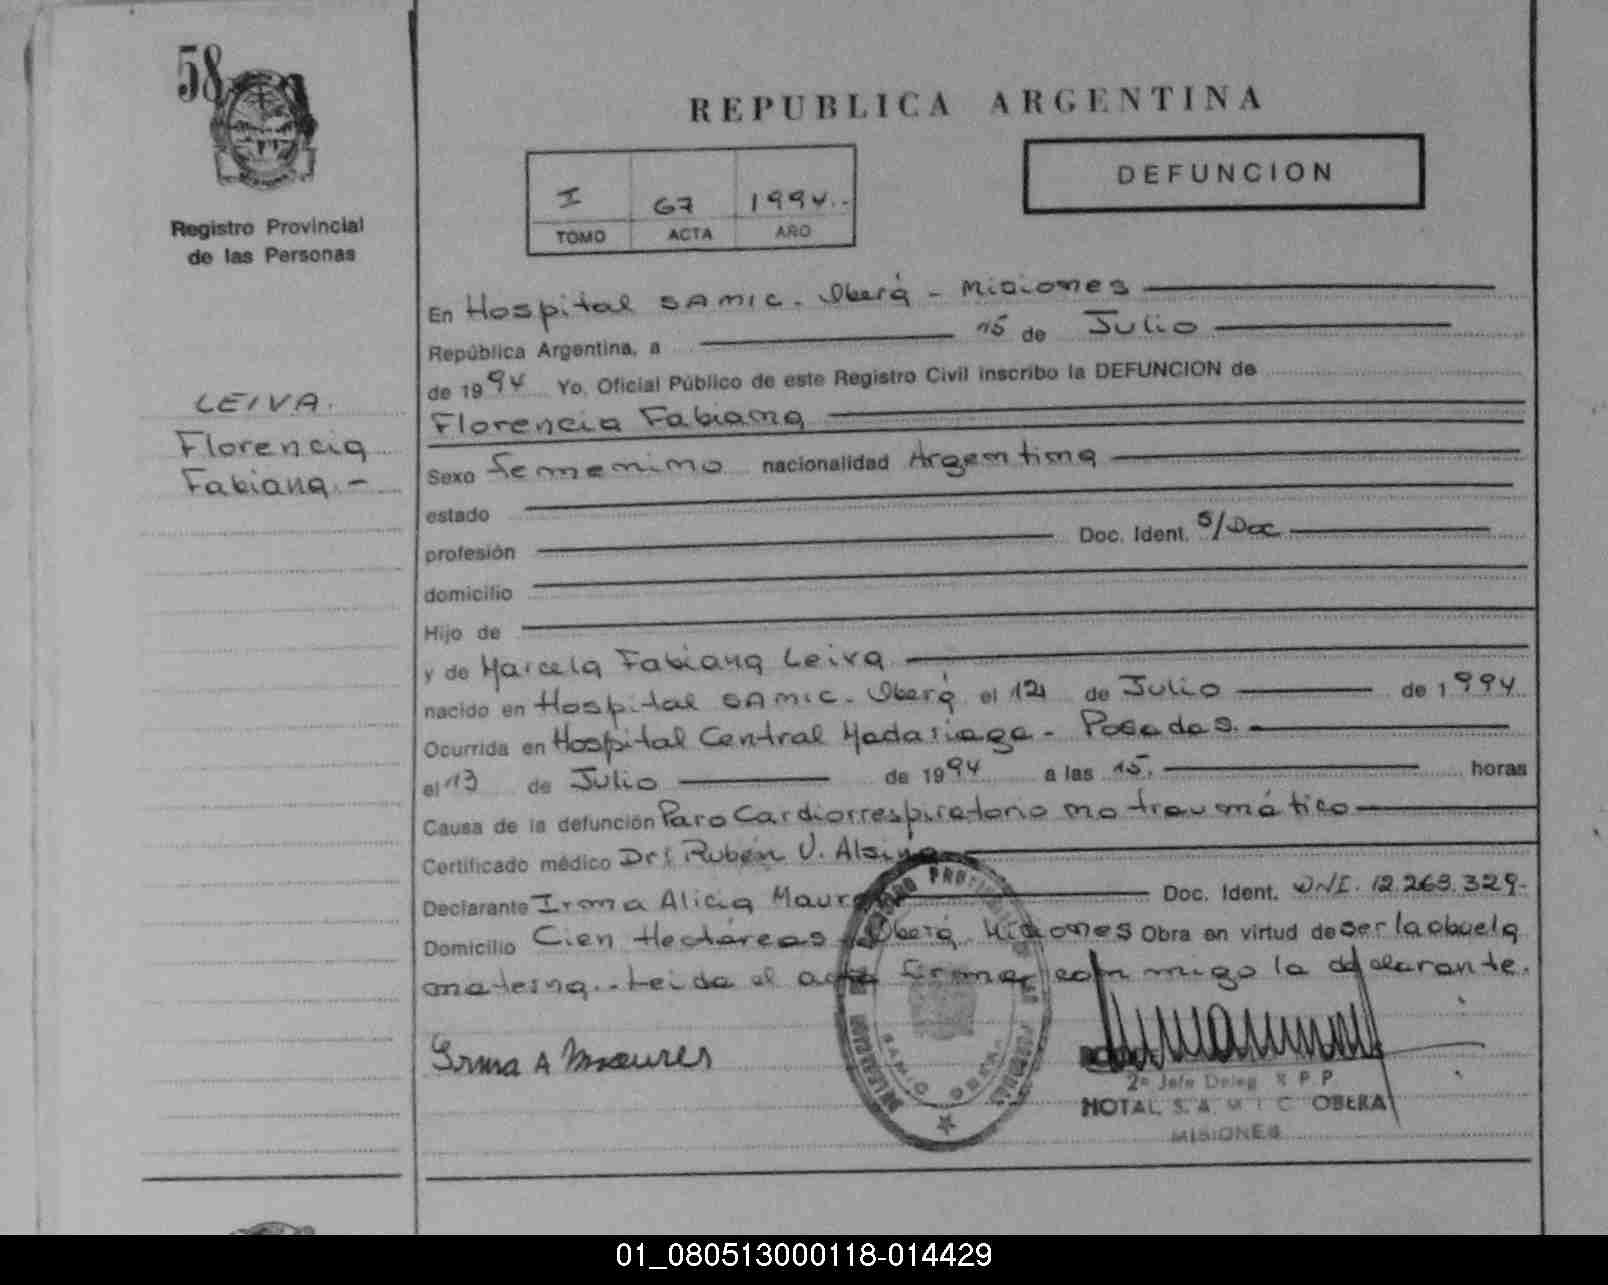 58
Registro Provincial
de las Personas
LEIVA.
Florencia
Fabiana.-
REPUBLICA ARGENTINA
DEFUNCION
I 67 1994.-
TOMO ACTA AÑO
En Hospital SAMIC. Oberá - Misiones
República Argentina, a 15 de Julio
de 1994 Yo, Oficial Público de este Registro Civil inscribo la DEFUNCION de
Florencia Fabiana
Sexo femenino nacionalidad Argentina
estado
profesión Doc. Ident. S/Doc
domicilio
Hijo de
y de Marcela Fabiana Leiva
nacido en Hospital SAMIC. Oberá el 12 de Julio de 1994
Ocurrida en Hospital Central Madariaga - Posadas.
el 13 de Julio de 1994 a las 15. horas
Causa de la defunción Paro Cardiorrespiratorio no traumático
Certificado médico Dr: Rubén V. Alsina
Declarante Irma Alicia Doc. Ident. DNI. 12.263.329-
Domicilio Cien Hectáreas Oberá Misiones Obra en virtud de ser la abuela
materna.- Leida el acta firma conmigo la declarante.
Irma A Maurer
DELEGACION
SAMIC
OBERA
2º Jefe Deleg. R P.P.
HOTAL S. A. M. I. C. OBERA
MISIONES
01_080513000118-014429